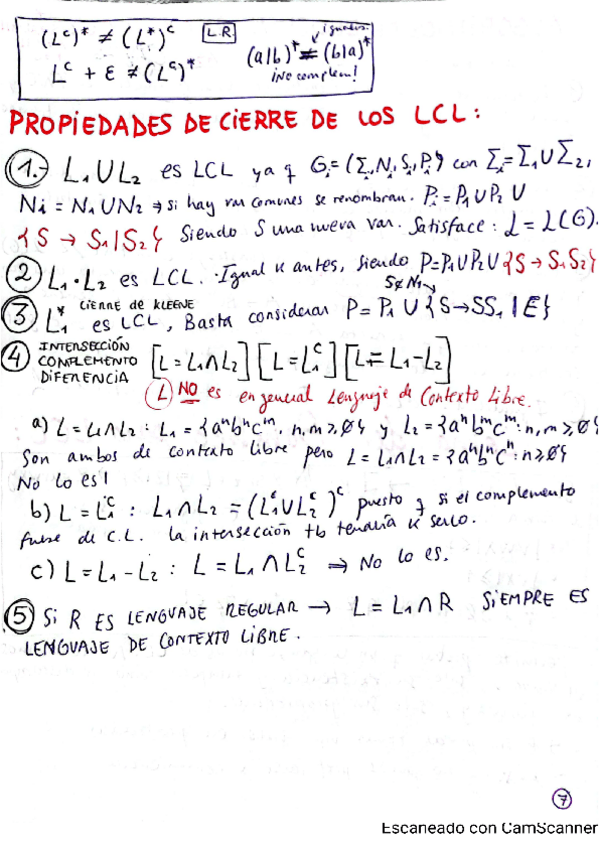 (Lᶜ)* ≠ (L*)ᶜ L.R
Lᶜ + ε ≠ (Lᶜ)*
iguales
(a|b)* ≠ (b|a)*
¡No complem!
PROPIEDADES DE CIERRE DE LOS LCL:
1.- L₁UL₂ es LCL ya q Gᵢ=(Σᵢ, Nᵢ, Sᵢ, Pᵢ) con Σᵢ=Σ₁UΣ₂,
Nᵢ = N₁UN₂ ⇒ si hay var comunes se renombran. Pᵢ = P₁UP₂ U
{S → S₁|S₂} Siendo S una nueva var. Satisface: L = L(G).
2 L₁·L₂ es LCL. Igual k antes, siendo P=P₁UP₂U{S→S₁S₂}
S∉N₁
3 L₁* CIERRE de KLEENE es LCL, Basta considerar P = P₁ U {S→SS₁|E}
4 INTERSECCIÓN
COMPLEMENTO [L=L₁∩L₂] [L=L₁ᶜ] [L=L₁-L₂]
DIFERENCIA
L NO es en general Lenguaje de Contexto Libre.
a) L=L₁∩L₂ : L₁ = {aⁿbⁿcᵐ, n,m≥0} y L₂={aⁿbᵐcᵐ: n,m≥0}
Son ambos de contexto libre pero L = L₁∩L₂={aⁿbⁿcⁿ: n≥0}
No lo es!
b) L=L₁ᶜ : L₁∩L₂ = (L₁ᶜUL₂ᶜ)ᶜ puesto q si el complemento
fuese de C.L. la intersección tb tendría k serlo.
c) L=L₁-L₂ : L = L₁∩L₂ᶜ ⇒ No lo es.
5 Si R ES LENGUAJE REGULAR → L = L₁∩R SIEMPRE ES
LENGUAJE DE CONTEXTO LIBRE.
7
Escaneado con CamScanner